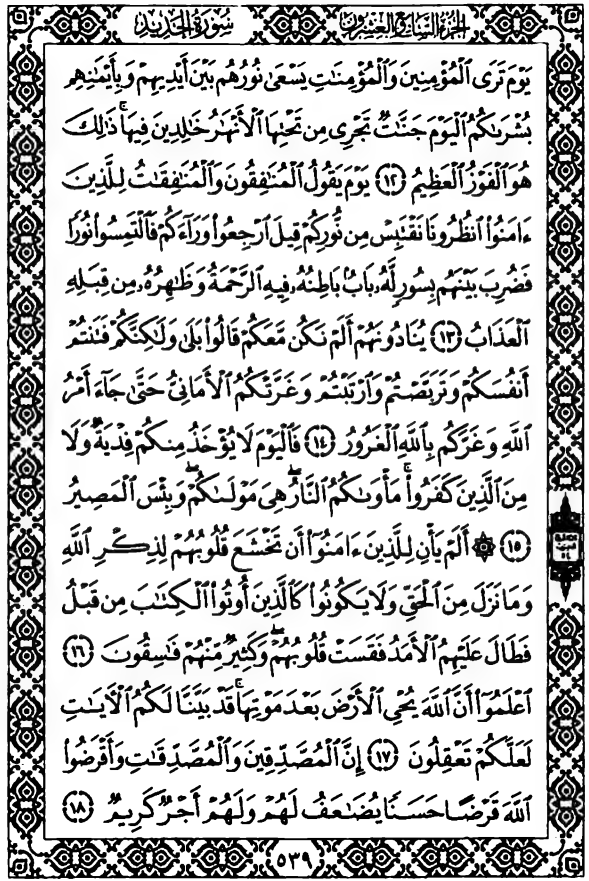 سُورَةُ الحَدِيدِ الجُزْءُ السَّابِعُ وَالعِشْرُونَ
يَوْمَ تَرَى ٱلْمُؤْمِنِينَ وَٱلْمُؤْمِنَٰتِ يَسْعَىٰ نُورُهُم بَيْنَ أَيْدِيهِمْ وَبِأَيْمَٰنِهِم
بُشْرَىٰكُمُ ٱلْيَوْمَ جَنَّٰتٌ تَجْرِى مِن تَحْتِهَا ٱلْأَنْهَٰرُ خَٰلِدِينَ فِيهَا ۚ ذَٰلِكَ
هُوَ ٱلْفَوْزُ ٱلْعَظِيمُ ١٢ يَوْمَ يَقُولُ ٱلْمُنَٰفِقُونَ وَٱلْمُنَٰفِقَٰتُ لِلَّذِينَ
ءَامَنُوا۟ ٱنظُرُونَا نَقْتَبِسْ مِن نُّورِكُمْ قِيلَ ٱرْجِعُوا۟ وَرَآءَكُمْ فَٱلْتَمِسُوا۟ نُورًا
فَضُرِبَ بَيْنَهُم بِسُورٍ لَّهُۥ بَابٌۢ بَاطِنُهُۥ فِيهِ ٱلرَّحْمَةُ وَظَٰهِرُهُۥ مِن قِبَلِهِ
ٱلْعَذَابُ ١٣ يُنَادُونَهُمْ أَلَمْ نَكُن مَّعَكُمْ قَالُوا۟ بَلَىٰ وَلَٰكِنَّكُمْ فَتَنتُمْ
أَنفُسَكُمْ وَتَرَبَّصْتُمْ وَٱرْتَبْتُمْ وَغَرَّتْكُمُ ٱلْأَمَانِىُّ حَتَّىٰ جَآءَ أَمْرُ
ٱللَّهِ وَغَرَّكُم بِٱللَّهِ ٱلْغَرُورُ ١٤ فَٱلْيَوْمَ لَا يُؤْخَذُ مِنكُمْ فِدْيَةٌ وَلَا
مِنَ ٱلَّذِينَ كَفَرُوا۟ ۚ مَأْوَىٰكُمُ ٱلنَّارُ ۖ هِىَ مَوْلَىٰكُمْ ۖ وَبِئْسَ ٱلْمَصِيرُ
١٥ ۞ أَلَمْ يَأْنِ لِلَّذِينَ ءَامَنُوٓا۟ أَن تَخْشَعَ قُلُوبُهُمْ لِذِكْرِ ٱللَّهِ
وَمَا نَزَلَ مِنَ ٱلْحَقِّ وَلَا يَكُونُوا۟ كَٱلَّذِينَ أُوتُوا۟ ٱلْكِتَٰبَ مِن قَبْلُ
فَطَالَ عَلَيْهِمُ ٱلْأَمَدُ فَقَسَتْ قُلُوبُهُمْ ۖ وَكَثِيرٌ مِّنْهُمْ فَٰسِقُونَ ١٦
ٱعْلَمُوٓا۟ أَنَّ ٱللَّهَ يُحْىِ ٱلْأَرْضَ بَعْدَ مَوْتِهَا ۚ قَدْ بَيَّنَّا لَكُمُ ٱلْءَايَٰتِ
لَعَلَّكُمْ تَعْقِلُونَ ١٧ إِنَّ ٱلْمُصَّدِّقِينَ وَٱلْمُصَّدِّقَٰتِ وَأَقْرَضُوا۟
ٱللَّهَ قَرْضًا حَسَنًا يُضَٰعَفُ لَهُمْ وَلَهُمْ أَجْرٌ كَرِيمٌ ١٨
٥٣٩